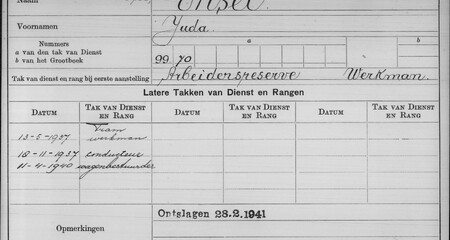 Naam
Voornamen Yuda.
Nummers a b
a van den tak van Dienst
b van het Grootboek 99 70
Tak van dienst en rang bij eerste aanstelling Arbeidersreserve Werkman.
Latere Takken van Dienst en Rangen
Datum Tak van Dienst en Rang Datum Tak van Dienst en Rang Datum Tak van Dienst en Rang
Tram
13-5-1937 werkman
18-11-1937 conducteur
11-4-1940 wagenbestuurder
Ontslagen 28.2.1941
Opmerkingen